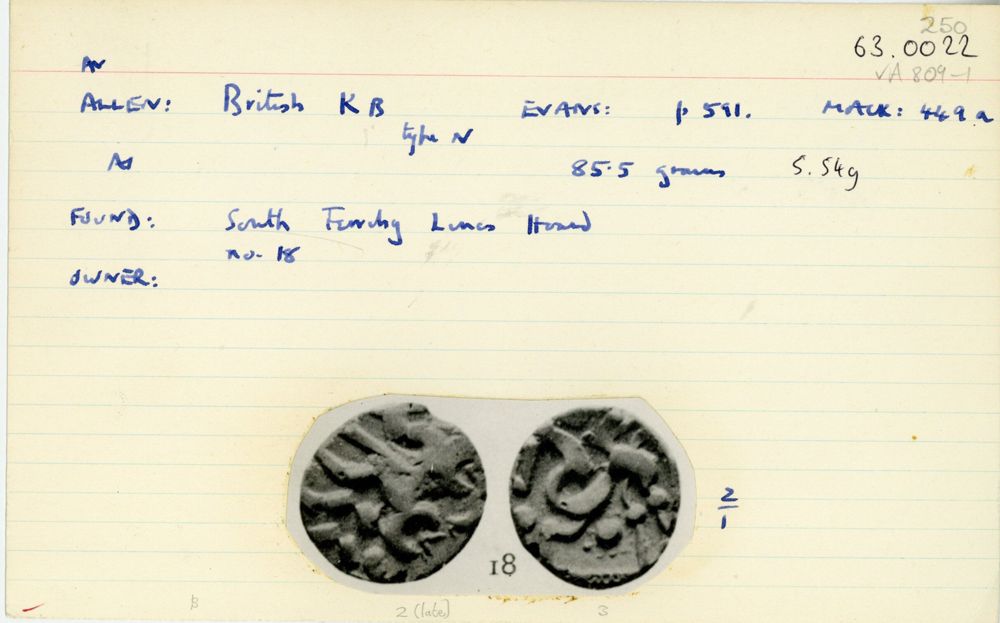 250
63.0022
VA 809-1
AV
ALLEN: British K B EVANS: p 591. MACK: 449a
type N
AV 85.5 grains 5.54g
FOUND: South Ferriby Lincs Hoard
no. 18
OWNER:
2/1
18
B 2 (late) 3